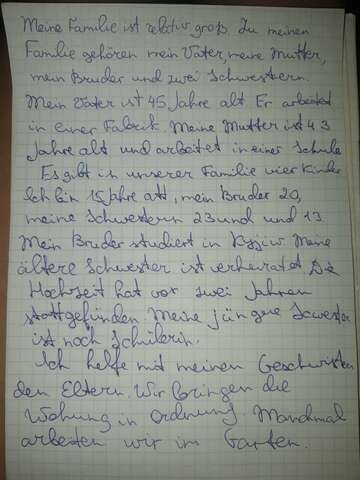 Meine Familie ist relativ groß. Zu meinen
Familie gehören mein Vater, meine Mutter,
mein Bruder und zwei Schwestern.
Mein Vater ist 45 Jahre alt Er arbeitet
in einer Fabrik. Meine Mutter ist 43
Jahre alt und arbeitet in einer Schule
Es gibt in unserer Familie vier Kinder
Ich bin 15 Jahre att, mein Bruder 20,
meine Schwestern 23 und und 13
Mein Bruder studiert in Kyjiw Meine
ältere Schwester ist verheiratet Die
Hochzeit hat vor zwei Jahren
stattgefunden Meine jüngere Scwester
ist noch Schülerin.
Ich helfe mit meinen Geschwistern
den Eltern. Wir bringen die
Wohung in Ordnung. Manchmal
arbeiten wir im Garten.